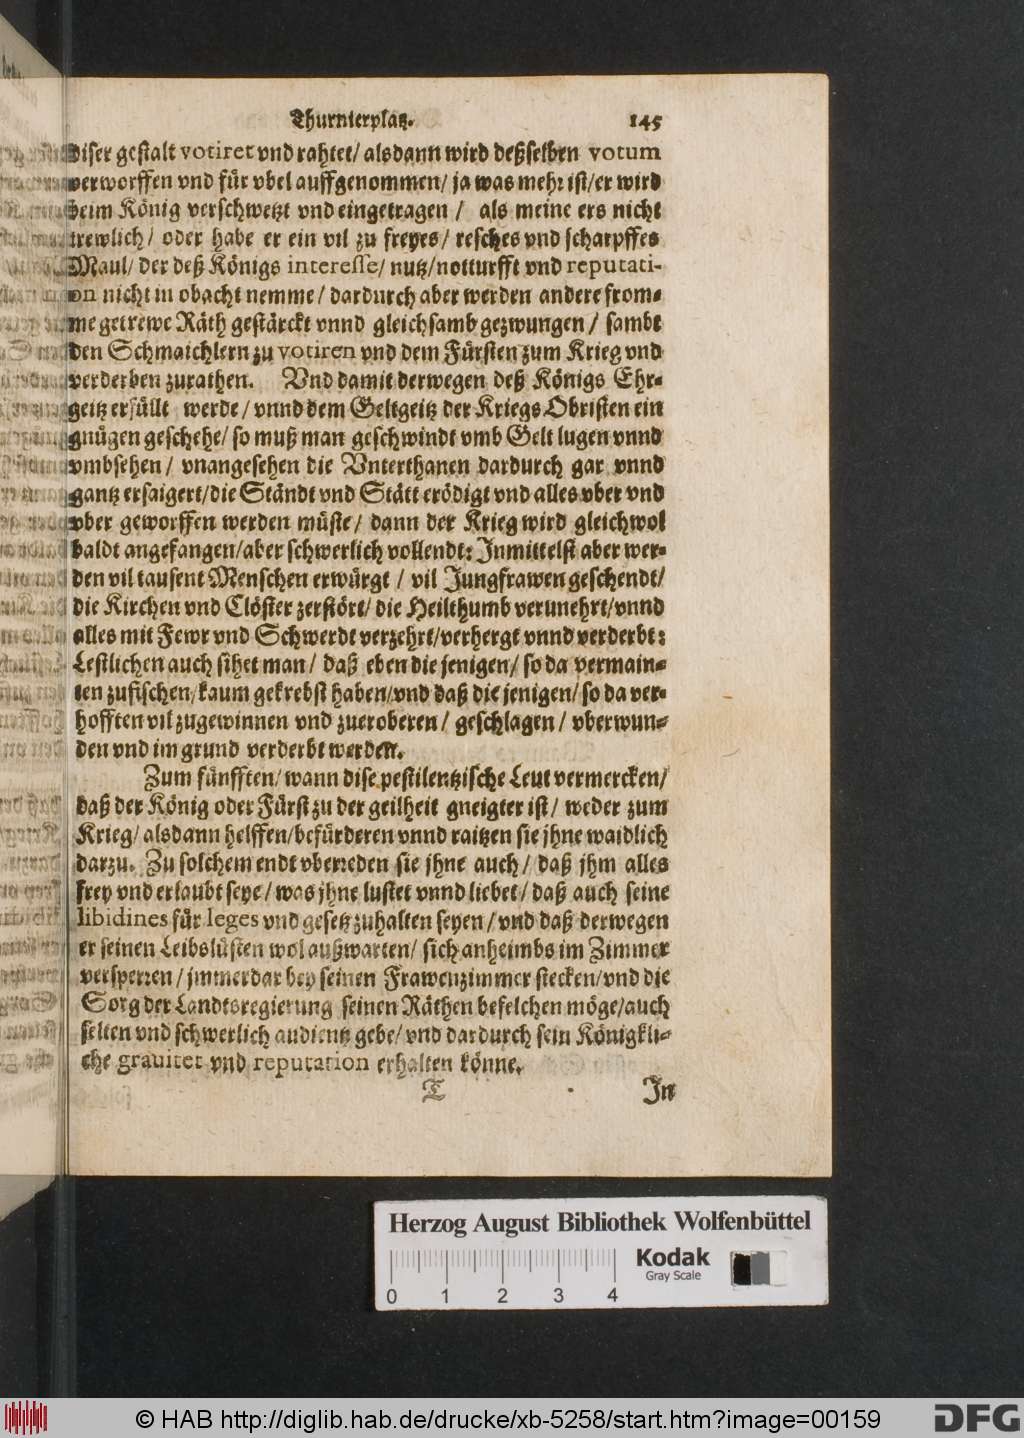 Thurnierplatz. 145
diser gestalt votiret vnd rahtet/ alsdann wird deßselben votum
verworffen vnd für vbel auffgenommen/ ja was mehr ist/ er wird
beim König verschwetzt vnd eingetragen / als meine ers nicht
trewlich/ oder habe er ein vil zu freyes/ resches vnd scharpffes
Maul/ der deß Königs interesse/ nutz/ notturfft vnd reputati-
on nicht in obacht nemme/ dardurch aber werden andere from-
me getrewe Räth gestärckt vnnd gleichsamb gezwungen / sambt
den Schmaichlern zu votiren vnd dem Fürsten zum Krieg vnd
verderben zurathen. Vnd damit derwegen deß Königs Ehr-
geitz erfüllt werde / vnnd dem Geltgeitz der Kriegs Obristen ein
gnügen geschehe/ so muß man geschwindt vmb Gelt lugen vnnd
vmbsehen / vnangesehen die Vnterthanen dardurch gar vnnd
gantz ersaigert/ die Ständt vnd Stätt erödigt vnd alles vber vnd
vber geworffen werden müste / dann der Krieg wird gleichwol
baldt angefangen/ aber schwerlich vollendt: Inmittelst aber wer-
den vil tausent Menschen erwürgt / vil Jungfrawen geschendt/
die Kirchen vnd Clöster zerstört/ die Heilthumb verunehrt/ vnnd
alles mit Fewr vnd Schwerdt verzehrt/ verhergt vnnd verderbt:
Lestlichen auch sihet man / daß eben die jenigen/ so da vermain-
ten zufischen/ kaum gekrebst haben/ vnd daß die jenigen/ so da ver-
hofften vil zugewinnen vnd zueroberen / geschlagen / vberwun-
den vnd im grund verderbt werden.
Zum fünfften/ wann dise pestilentzische Leut vermercken/
daß der König oder Fürst zu der geilheit gneigter ist / weder zum
Krieg/ alsdann helffen/ befürderen vnnd raitzen sie jhne waidlich
darzu. Zu solchem endt vberreden sie jhne auch / daß jhm alles
frey vnd erlaubt seye / was jhne lustet vnnd liebet/ daß auch seine
libidines für leges vnd gesetz zuhalten seyen / vnd daß derwegen
er seinen Leibslüsten wol außwarten/ sich anheimbs im Zimmer
versperren / jmmerdar bey seinen Frawenzimmer stecken/ vnd die
Sorg der Landtsregierung seinen Räthen befelchen möge/ auch
selten vnd schwerlich audientz gebe/ vnd dardurch sein Königkli-
che grauitet vnd reputation erhalten könne.
T In
Herzog August Bibliothek Wolfenbüttel
Kodak
Gray Scale
0 1 2 3 4
© HAB http://diglib.hab.de/drucke/xb-5258/start.htm?image=00159
DFG